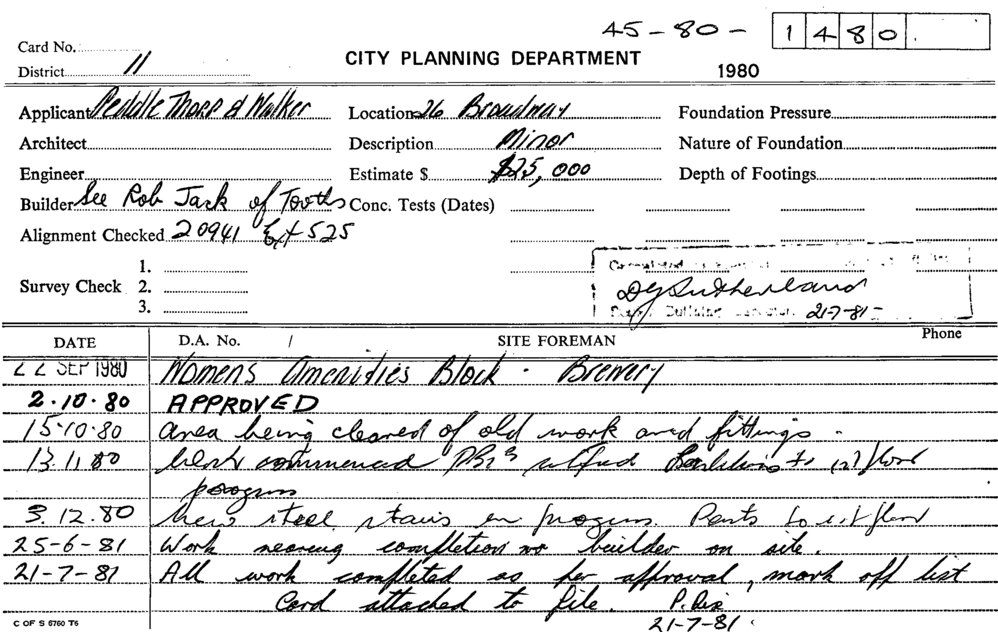 45-80- 1480.
Card No.
District 11
CITY PLANNING DEPARTMENT
1980
Applicant Peddle Thorp & Walker Location 26 Broadway Foundation Pressure
Architect Description Minor Nature of Foundation
Engineer Estimate $ $25,000 Depth of Footings
Builder See Rob Jack of Tooths Conc. Tests (Dates)
Alignment Checked 20941 Ext 525
1.
Survey Check 2.
3.
DGSutherland
21-7-81-
DATE D.A. No. / SITE FOREMAN Phone
22 SEP 1980 Womens Amenities Block - Brewery
2.10.80 APPROVED
15.10.80 Area being cleared of old work and fittings -
13.11.80 Work commenced to 1st floor
progress
3.12.80 New steel stairs in progress. to 1st floor
25-6-81 Work nearing completion no builder on site.
21-7-81 All work completed as per approval, mark off list
Card attached to file. P.
21-7-81.
C OF S 6760 T6